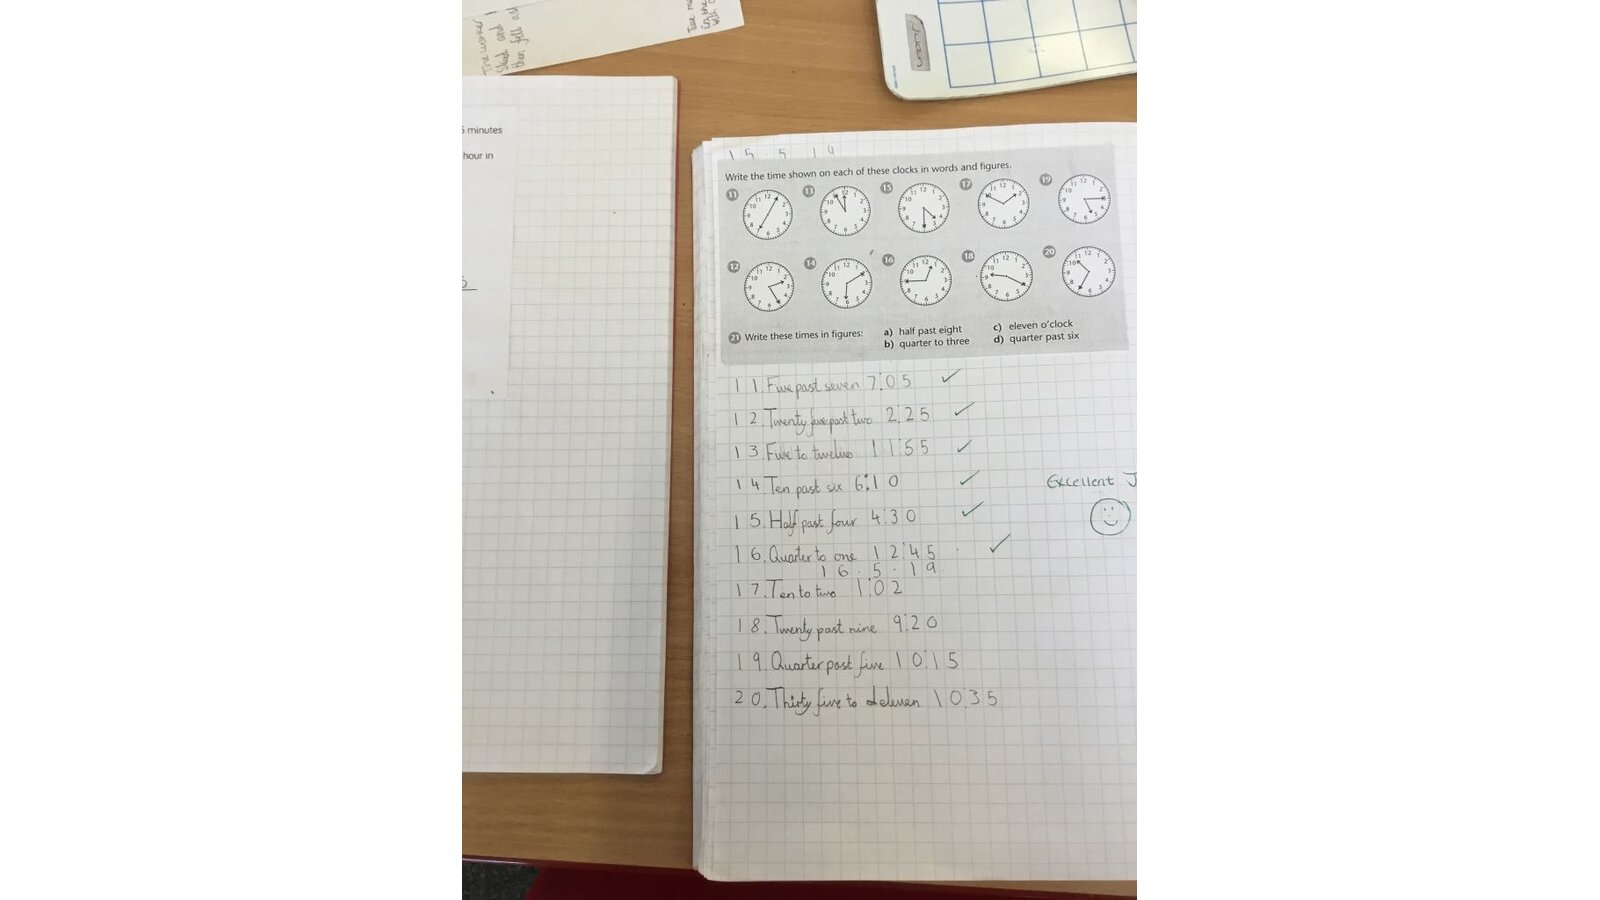 The worker
Shed and
then fell asl
5 minutes
hour in
15.5.19
Write the time shown on each of these clocks in words and figures.
11 13 15 17 19
12 14 16 18 20
21 Write these times in figures: a) half past eight c) eleven o'clock
b) quarter to three d) quarter past six
11. Five past seven 7:05
12. Twenty five past two 2:25
13. Five to twelve 11:55
14. Ten past six 6:10
15. Half past four 4:30
16. Quarter to one 12:45
16.5.19
17. Ten to two 1:02
18. Twenty past nine 9:20
19. Quarter past five 10:15
20. Thirty five to eleven 10:35
Excellent J